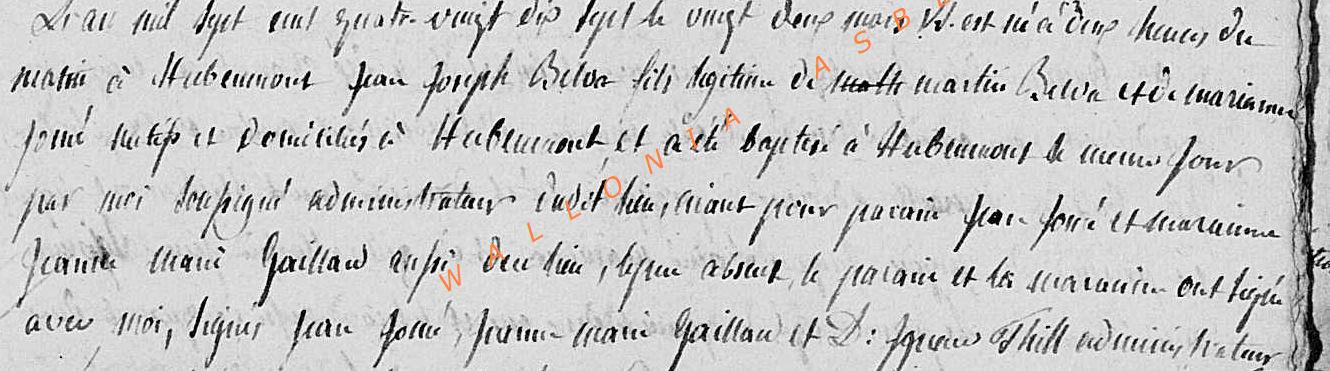 L'an mil sept cent quatre vingt dix sept le vingt deux mars est né à deux heures du
matin à Hubermont Jean Joseph Belva fils legitime de math martin Belva et de marianne
jomé natifs et domiciliés à Hubermont et a été baptisé à Hubermont le meme jour
par moi soussigné administrateur dudit lieu, aiant pour parain jean jomé et maraine
Jeanne marie Gaillard aussi du lieu, le pere absent, le parain et la maraine ont signé
avec moi, signés jean jomé, jeanne marie Gaillard et D: Thill administrateur
WALLONIA ASB